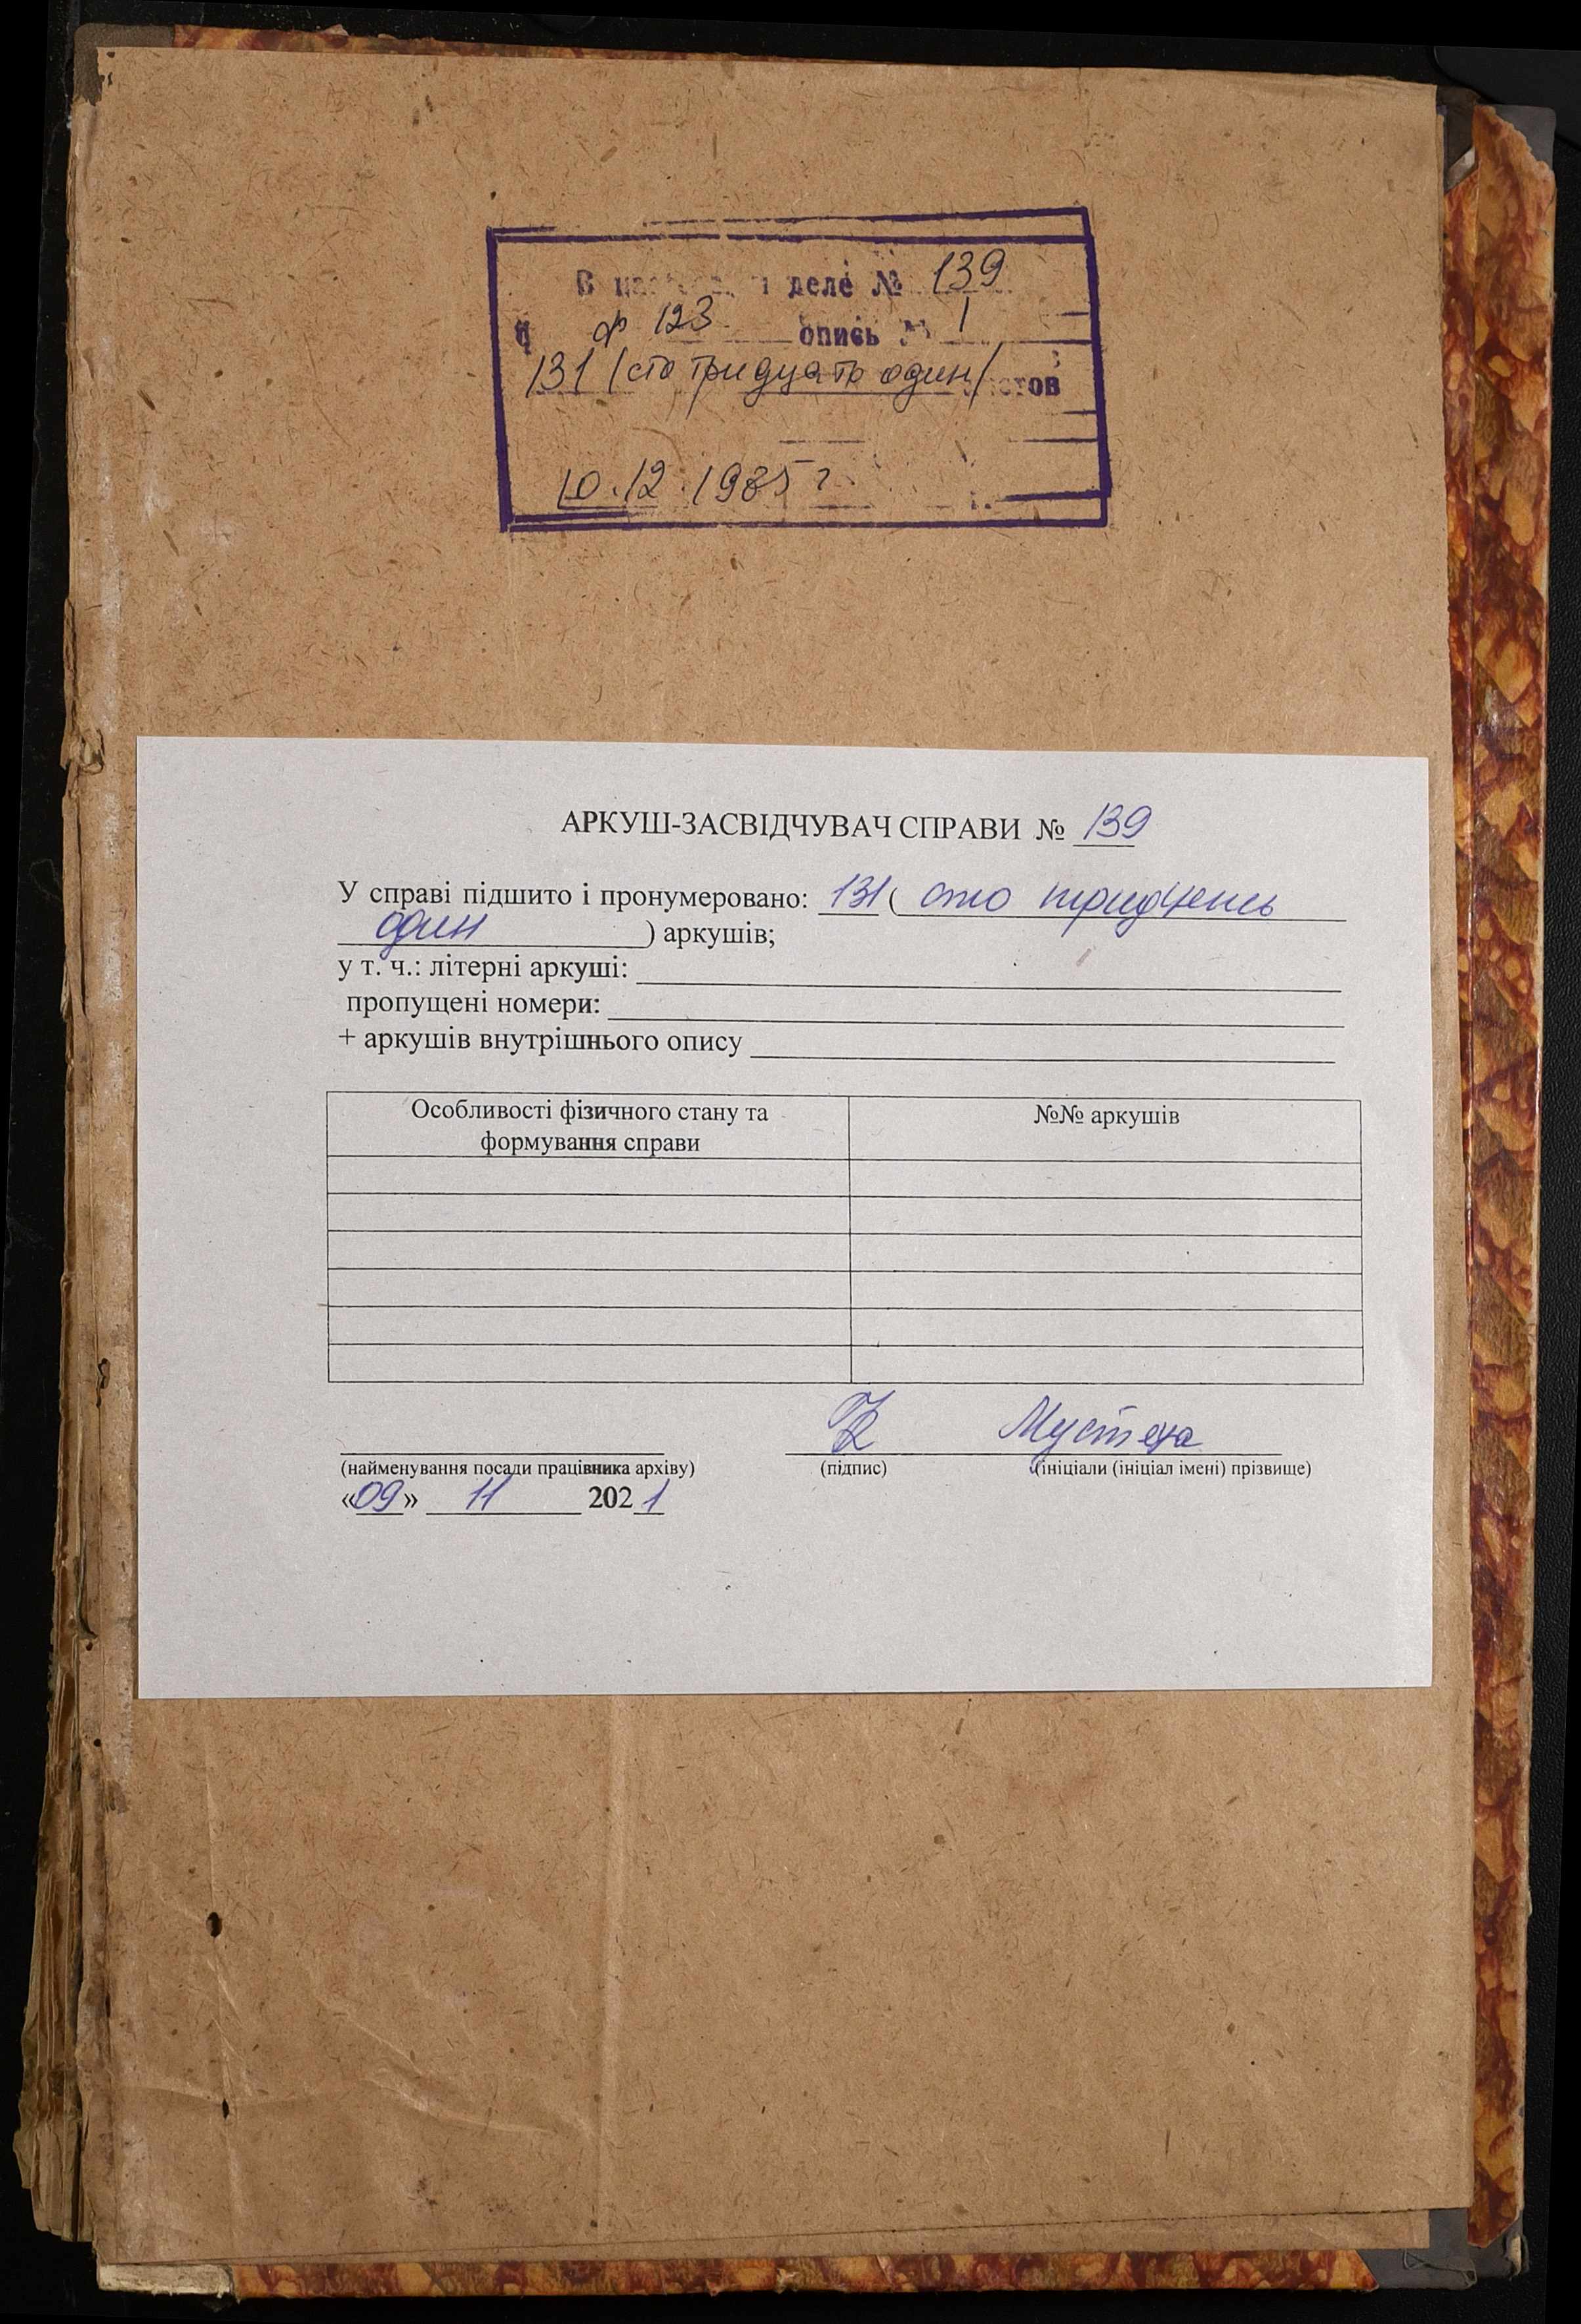 В деле № 139
ф 123 опись № 1
131 (сто тридцать один)
10.12.1985 г
АРКУШ-ЗАСВІДЧУВАЧ СПРАВИ № 139
У справі підшито і пронумеровано: 131 ( сто тридцять
один ) аркушів;
у т. ч.: літерні аркуші:
пропущені номери:
+ аркушів внутрішнього опису
Особливості фізичного стану та
формування справи
№№ аркушів
(найменування посади працівника архіву)
(підпис)
(ініціали (ініціал імені) прізвище)
«09» 11 2021